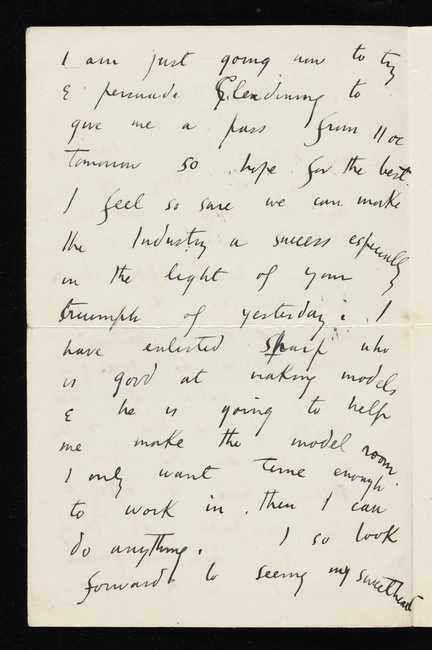 I am just going now to try
& persuade Glendining to
give me a pass from 11 oc
tomorrow so hope for the best.
I feel so sure we can make
the Industry a success especially
in the light of your
triumph of yesterday. I
have enlisted Sharp who
is good at making models
& he is going to help
me make the model room.
I only want time enough
to work in. Then I can
do anything. I so look
forward to seeing my sweetheart